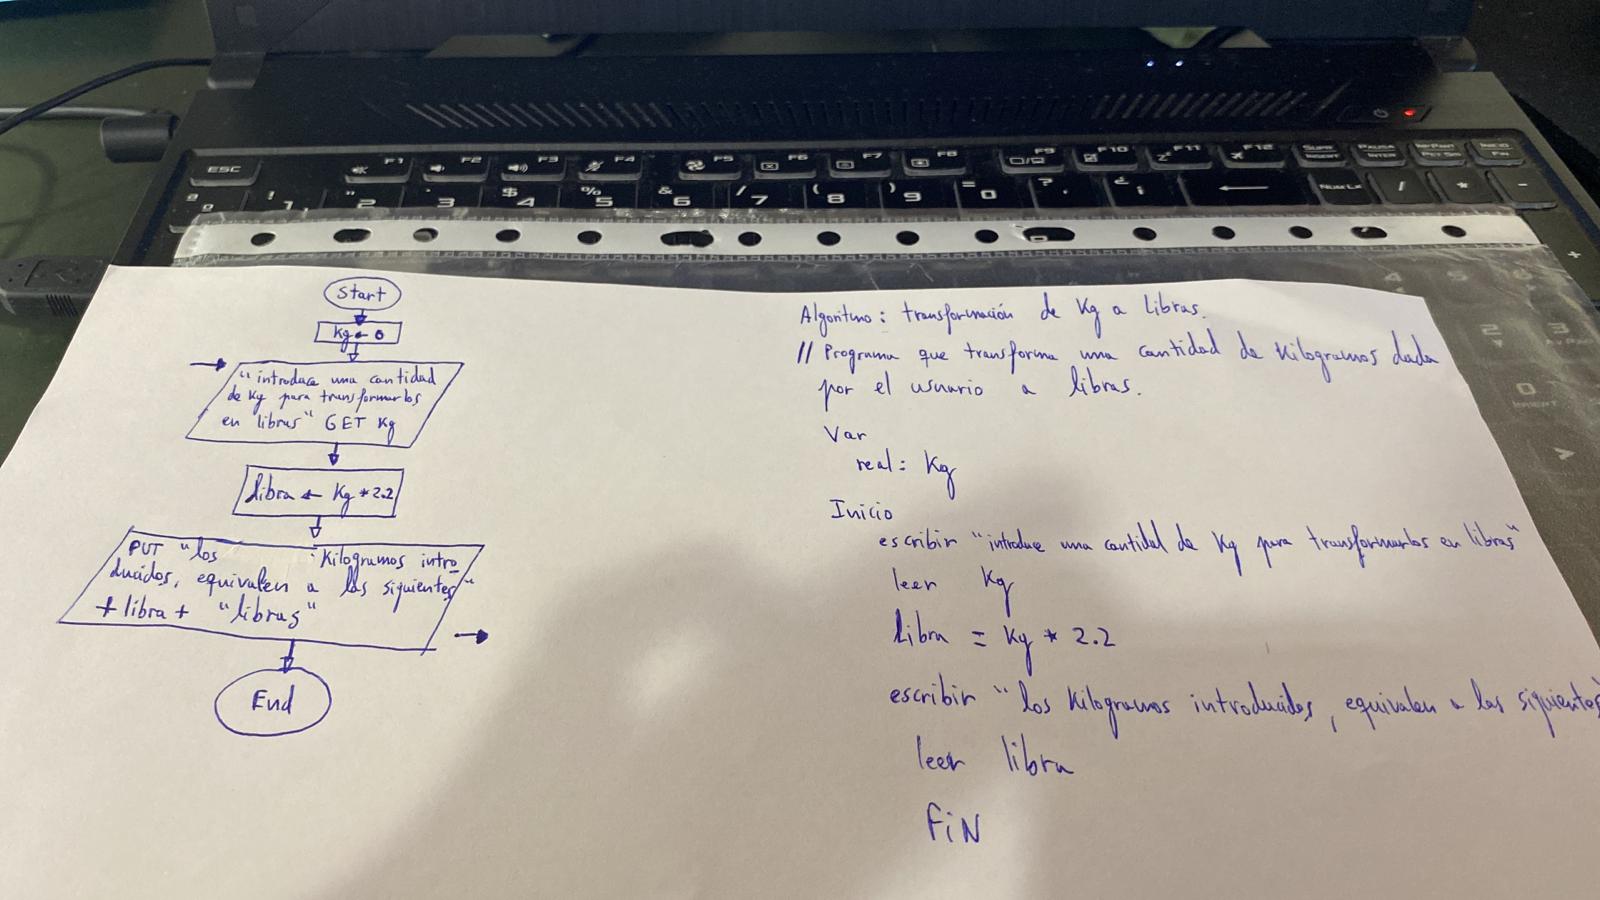 ESC
F1
F2
F3
F4
F5
F6
F7
F8
F9
F10
F11
F12
Start
Kg ← 0
"introduce una cantidad
de Kg para transformarlos
en libras" GET Kg
libra ← Kg * 2.2
PUT "los Kilogramos intro-
ducidos, equivalen a las siguientes"
+ libra + "libras"
End
Algoritmo: transformación de Kg a Libras.
// Programa que transforma una cantidad de Kilogramos dada
por el usuario a libras.
Var
real: Kg
Inicio
escribir "introduce una cantidad de Kg para transformarlos en libras"
leer Kg
Libra = Kg * 2.2
escribir "los Kilogramos introducidos, equivalen a las siguientes"
leer libra
FiN